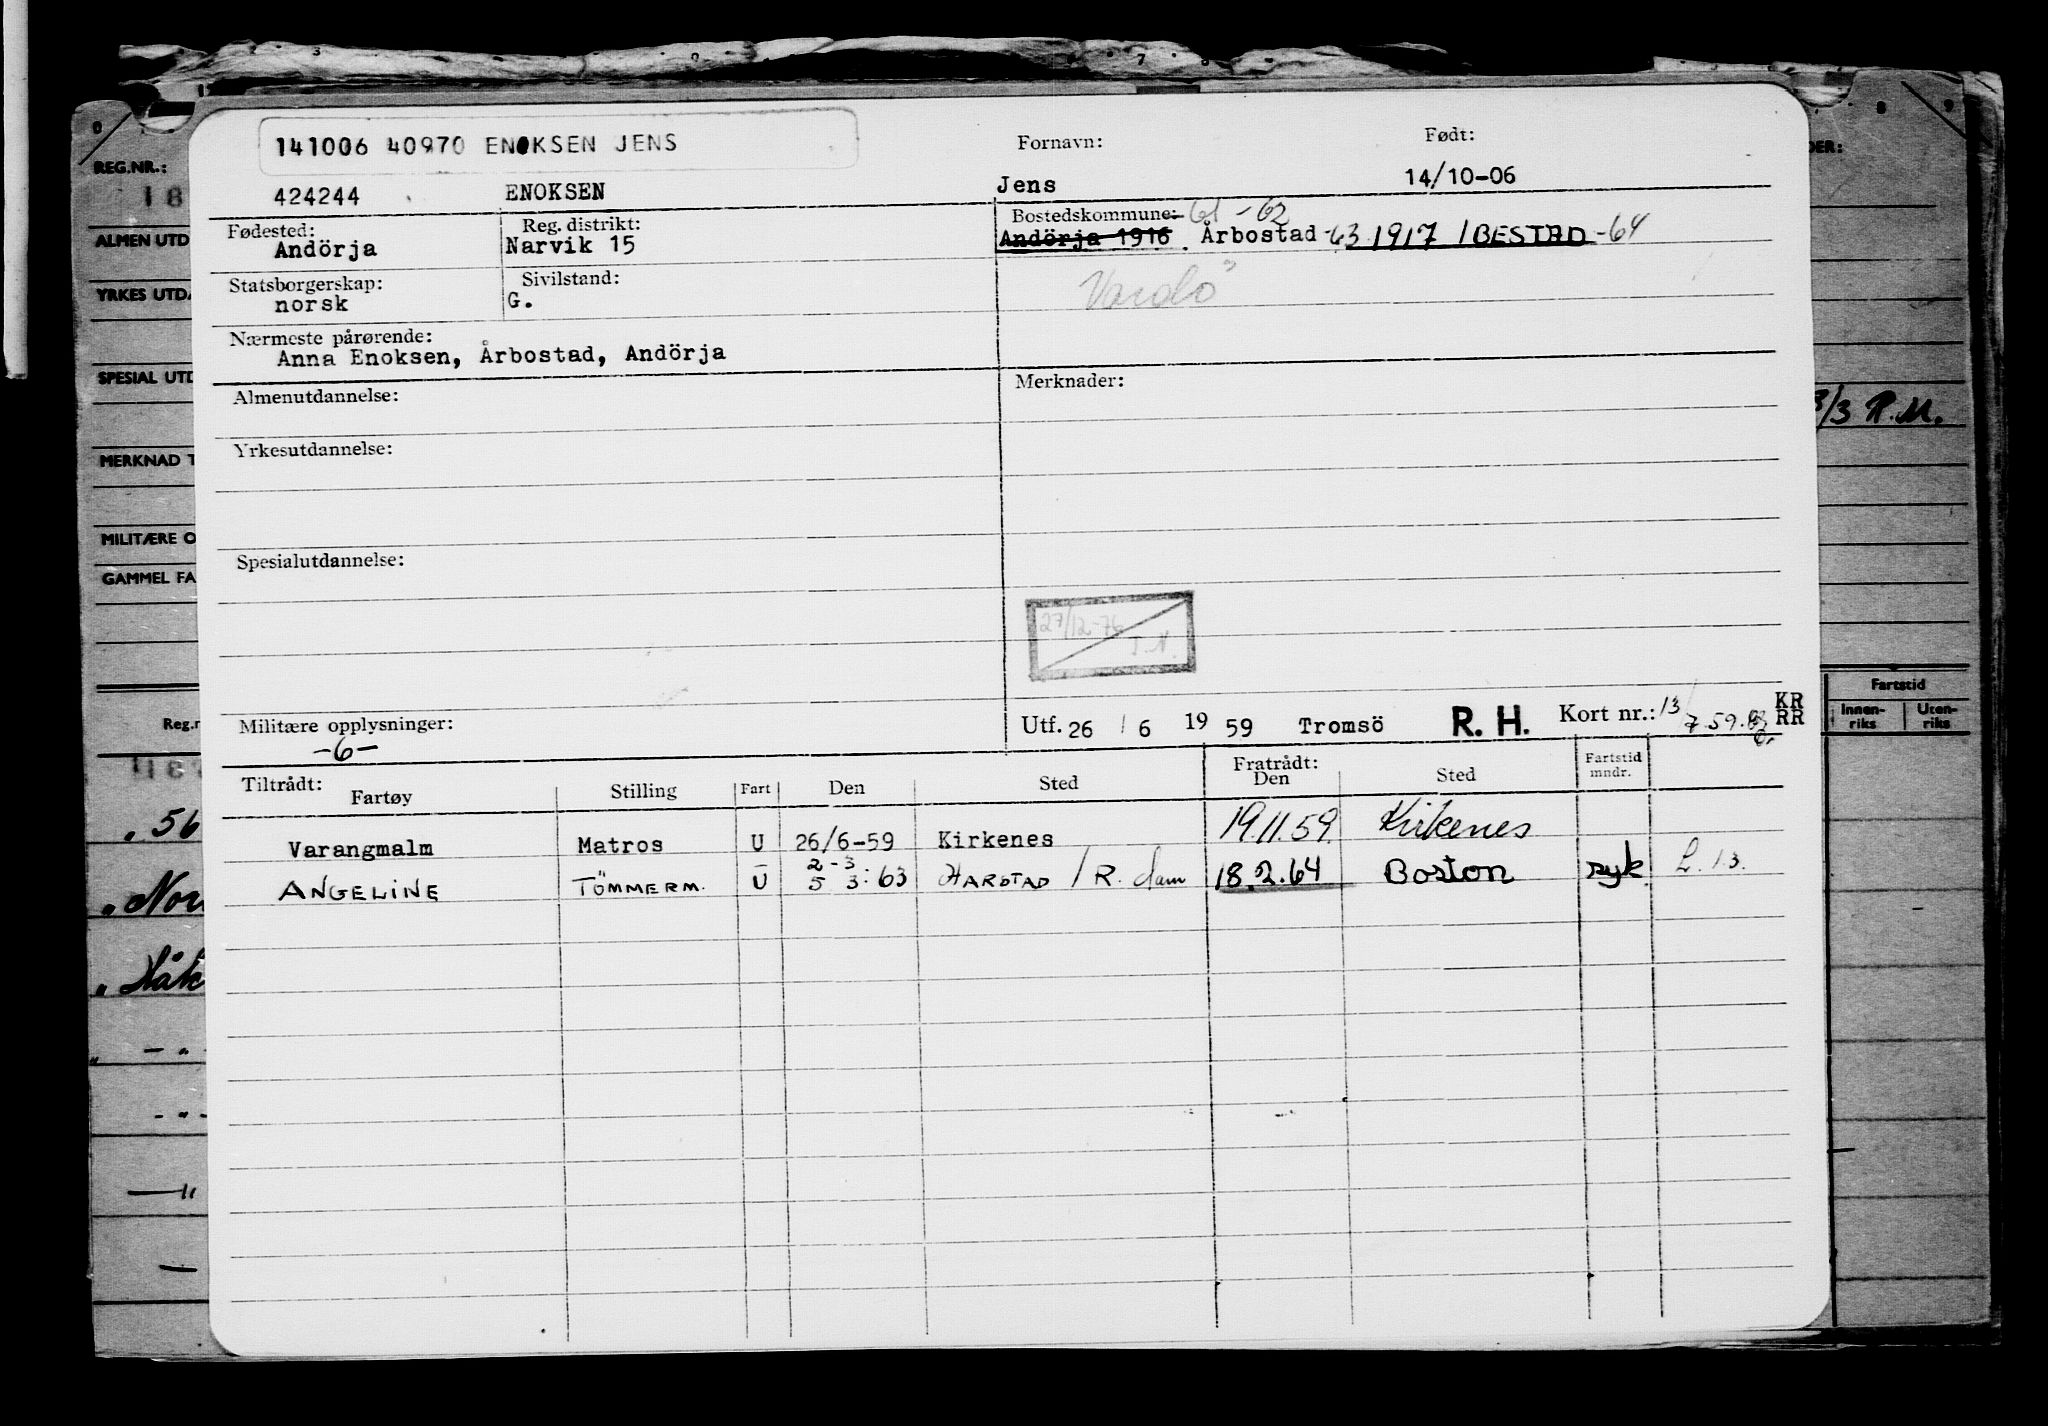 141006 40970 ENOKSEN JENS
Fornavn: Født:
424244 ENOKSEN Jens 14/10-06
Fødested: Reg. distrikt: Bostedskommune: 61-62
Andörja Narvik 15 Andörja 1916 Årbostad -63 1917 IBESTAD -64
Statsborgerskap: Sivilstand: Vardö
norsk G.
Nærmeste pårørende:
Anna Enoksen, Årbostad, Andörja
Almenutdannelse: Merknader:
Yrkesutdannelse:
Spesialutdannelse:
27/12-76
T.N.
Militære opplysninger: Utf. 26 / 6 19 59 Tromsö R. H. Kort nr.: 13/7.59. KR RR
-6-
Tiltrådt: Fartøy Stilling Fart Den Sted Fratrådt: Den Sted Fartstid mndr.
Varangmalm Matros U 26/6-59 Kirkenes 19.11.59. Kirkenes
2-3
ANGELINE TÖMMERM. U 5 3:63 HARSTAD / R.dam 18.2.64 Boston syk L.13.
REG.NR.:
18
ALMEN UTD
YRKES UTDA
SPESIAL UTD
MERKNAD T
MILITÆRE O
GAMMEL FA
Reg.n
56
Nor
Håk
DER:
3/3 R.M.
Fartstid
Innenriks Utenriks